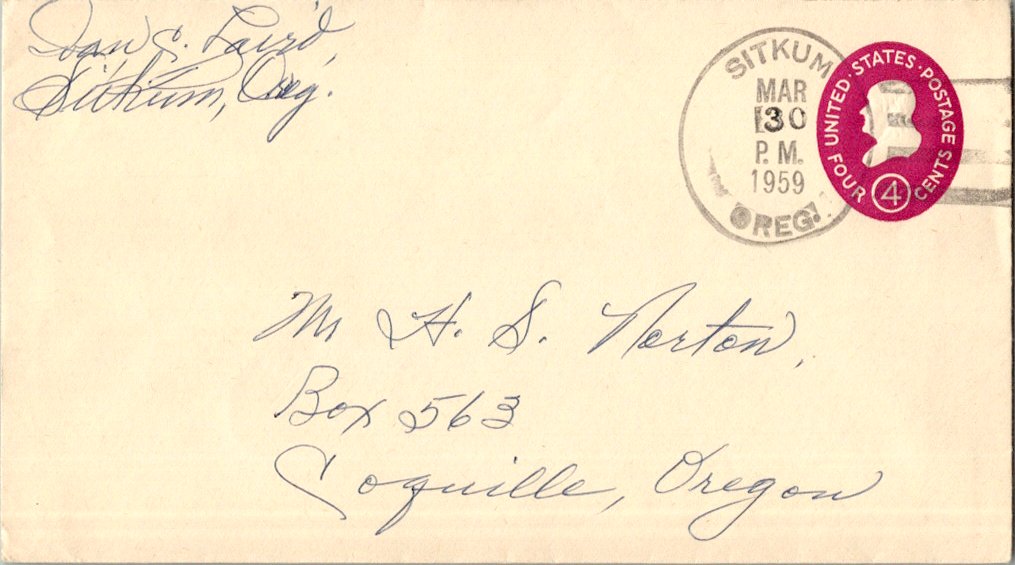 Ivan C. Laird,
Sitkum, Oreg.
SITKUM
MAR
30
P. M.
1959
OREG.
UNITED STATES POSTAGE
FOUR CENTS
4
Mr H. S. Norton,
Box 563
Coquille, Oregon